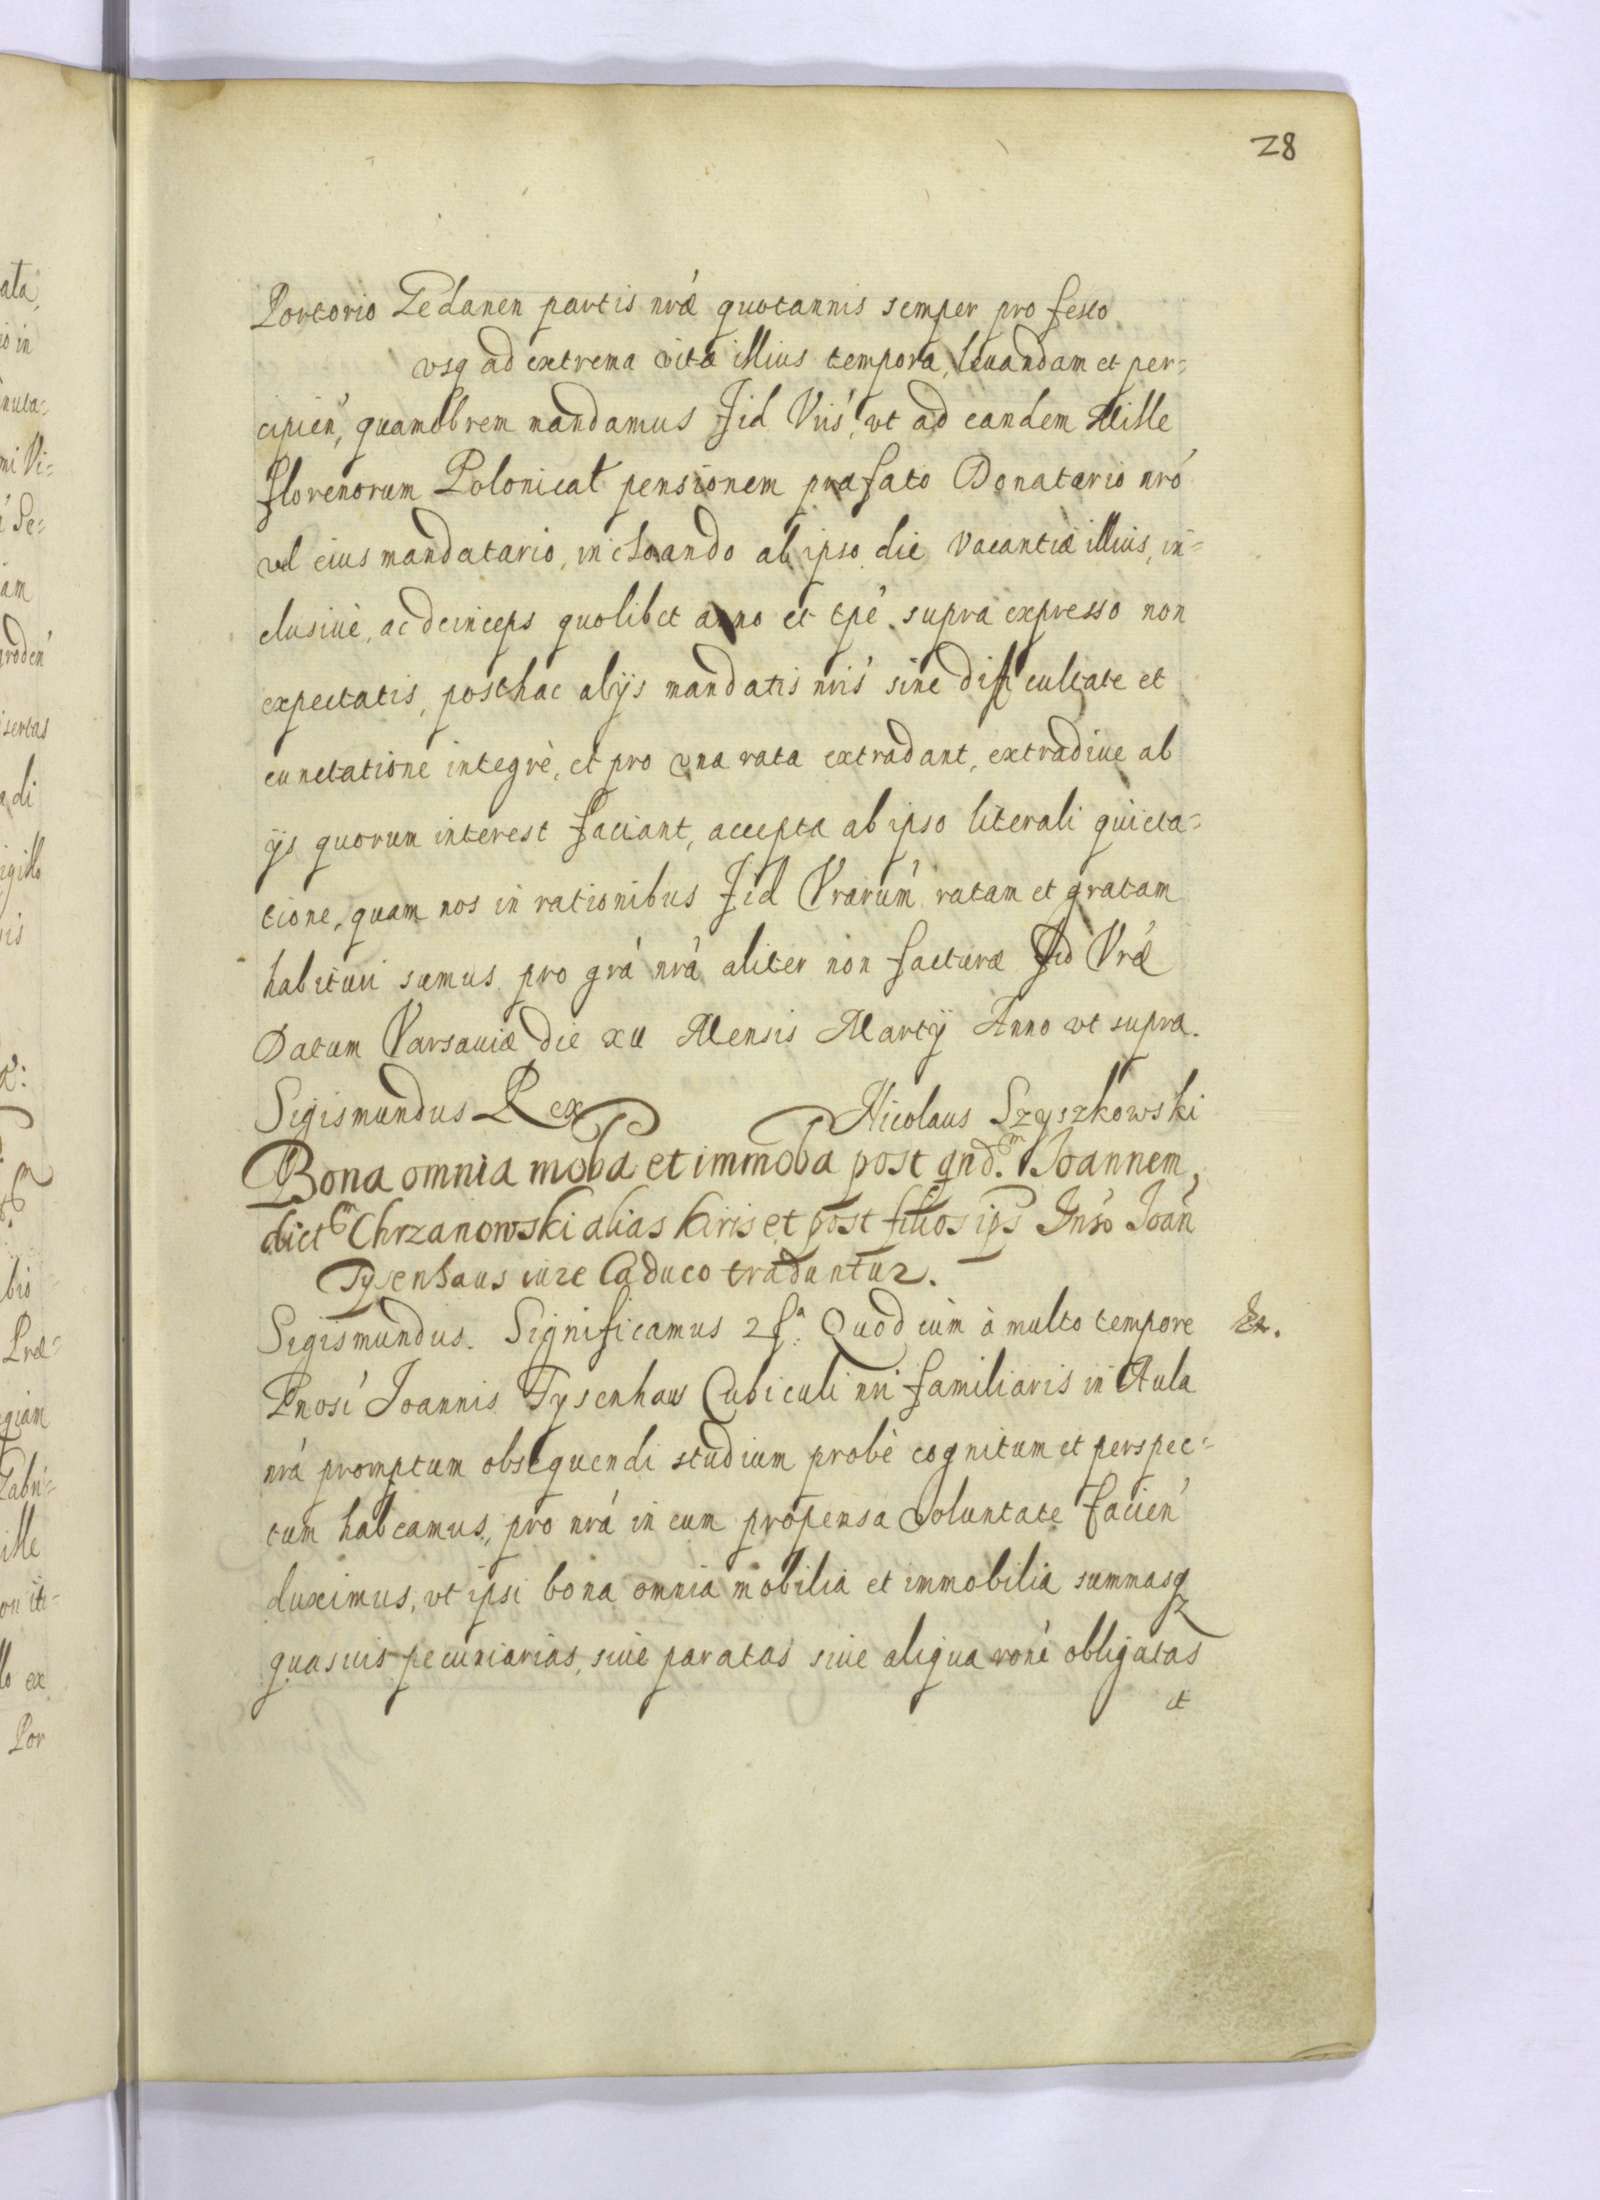 28
Portorio Gedanen partis nrǽ quotannis semper pro festo
vsq ad extrema vitæ illius tempora, leuandam et per=
cipień, quamobrem mandamus Fid Vrís, vt ad eandem Mille
florenorum Polonical pensionem præfato Donatario nró
vel eius mandatario, inchoando ab ipso die vacantiæ illius, in=
clusiuè, ac deinceps quolibet anno et tpé supra expresso non
expectatis, posthac alijs mandatis nrís sine difficultate et
cunctatione integrè, et pro vna rata extradant, extradiue ab
ijs quorum interest faciant, accepta ab ipso literali quieta=
tione, quam nos in rationibus Fid Vrarúm ratam et gratam
habituri sumus pro grá nrá aliter non facturæ Fid Vrǽ
Datum Varsauiæ die xv Mensis Martij Anno vt supra.
Sigismundus Rex Nicolaus Szyszkowski
Bona omnia mobla et immobla post qnd.m Joannem,
dictm Chrzanowski alias Kiris et post filios ips Gnso Joań
Tysenhaus iure Caduco traduntur.
Sigismundus. Significamus 2 fa. Quod cùm à multo tempore &.
Gnosi Joannis Tysenhaus Cubiculi nri familiaris in Aula
nrá promptum obsequendi studium probè cognitum et perspec=
tum habeamus, pro nrá in eum propensa voluntate facień
duximus, vt ipsi bona omnia mobilia et immobilia summasq
quasuis pecuniarias, siue paratas siue aliqua roné obligatas
et